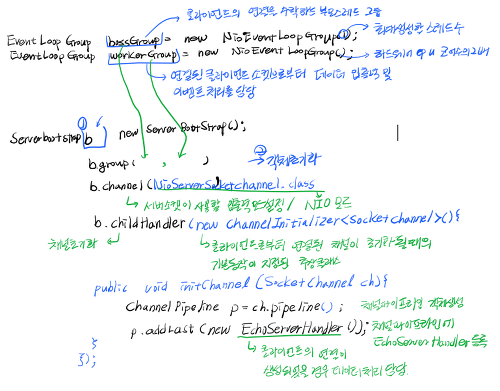 클라이언트의 연결을 수락하는 부모스레드 그룹
EventLoopGroup bossGroup = new NioEventLoopGroup(1); 최대생성한스레드수
EventLoopGroup workerGroup = new NioEventLoopGroup(); 하드웨어 CPU 코어수의2배
연결된 클라이언트 소켓으로부터 데이터 입출력 및
이벤트처리를 담당
①
Serverbootstrap b new ServerBootStrap();
b.group( , ) ② 객체초기화
b.channel(NioServerSocketchannel.class
서버소켓이 사용할 입출력모드설정 / NIO 모드
b.childHandler(new ChannelInitializer<Socketchannel>(){
채널초기화 클라이언트로부터 연결된 채널이 초기화 될때의
기본동작이 지정된 추상클래스
public void initChannel(SocketChannel ch){
ChannelPipeline p = ch.pipeline(); 채널파이프라인 객체생성
p.addLast(new EchoServerHandler()); 채널파이프라인에
EchoServerHandler 등록
클라이언트의 연결이
생성되었을 경우 데이터처리 담당.
}
});